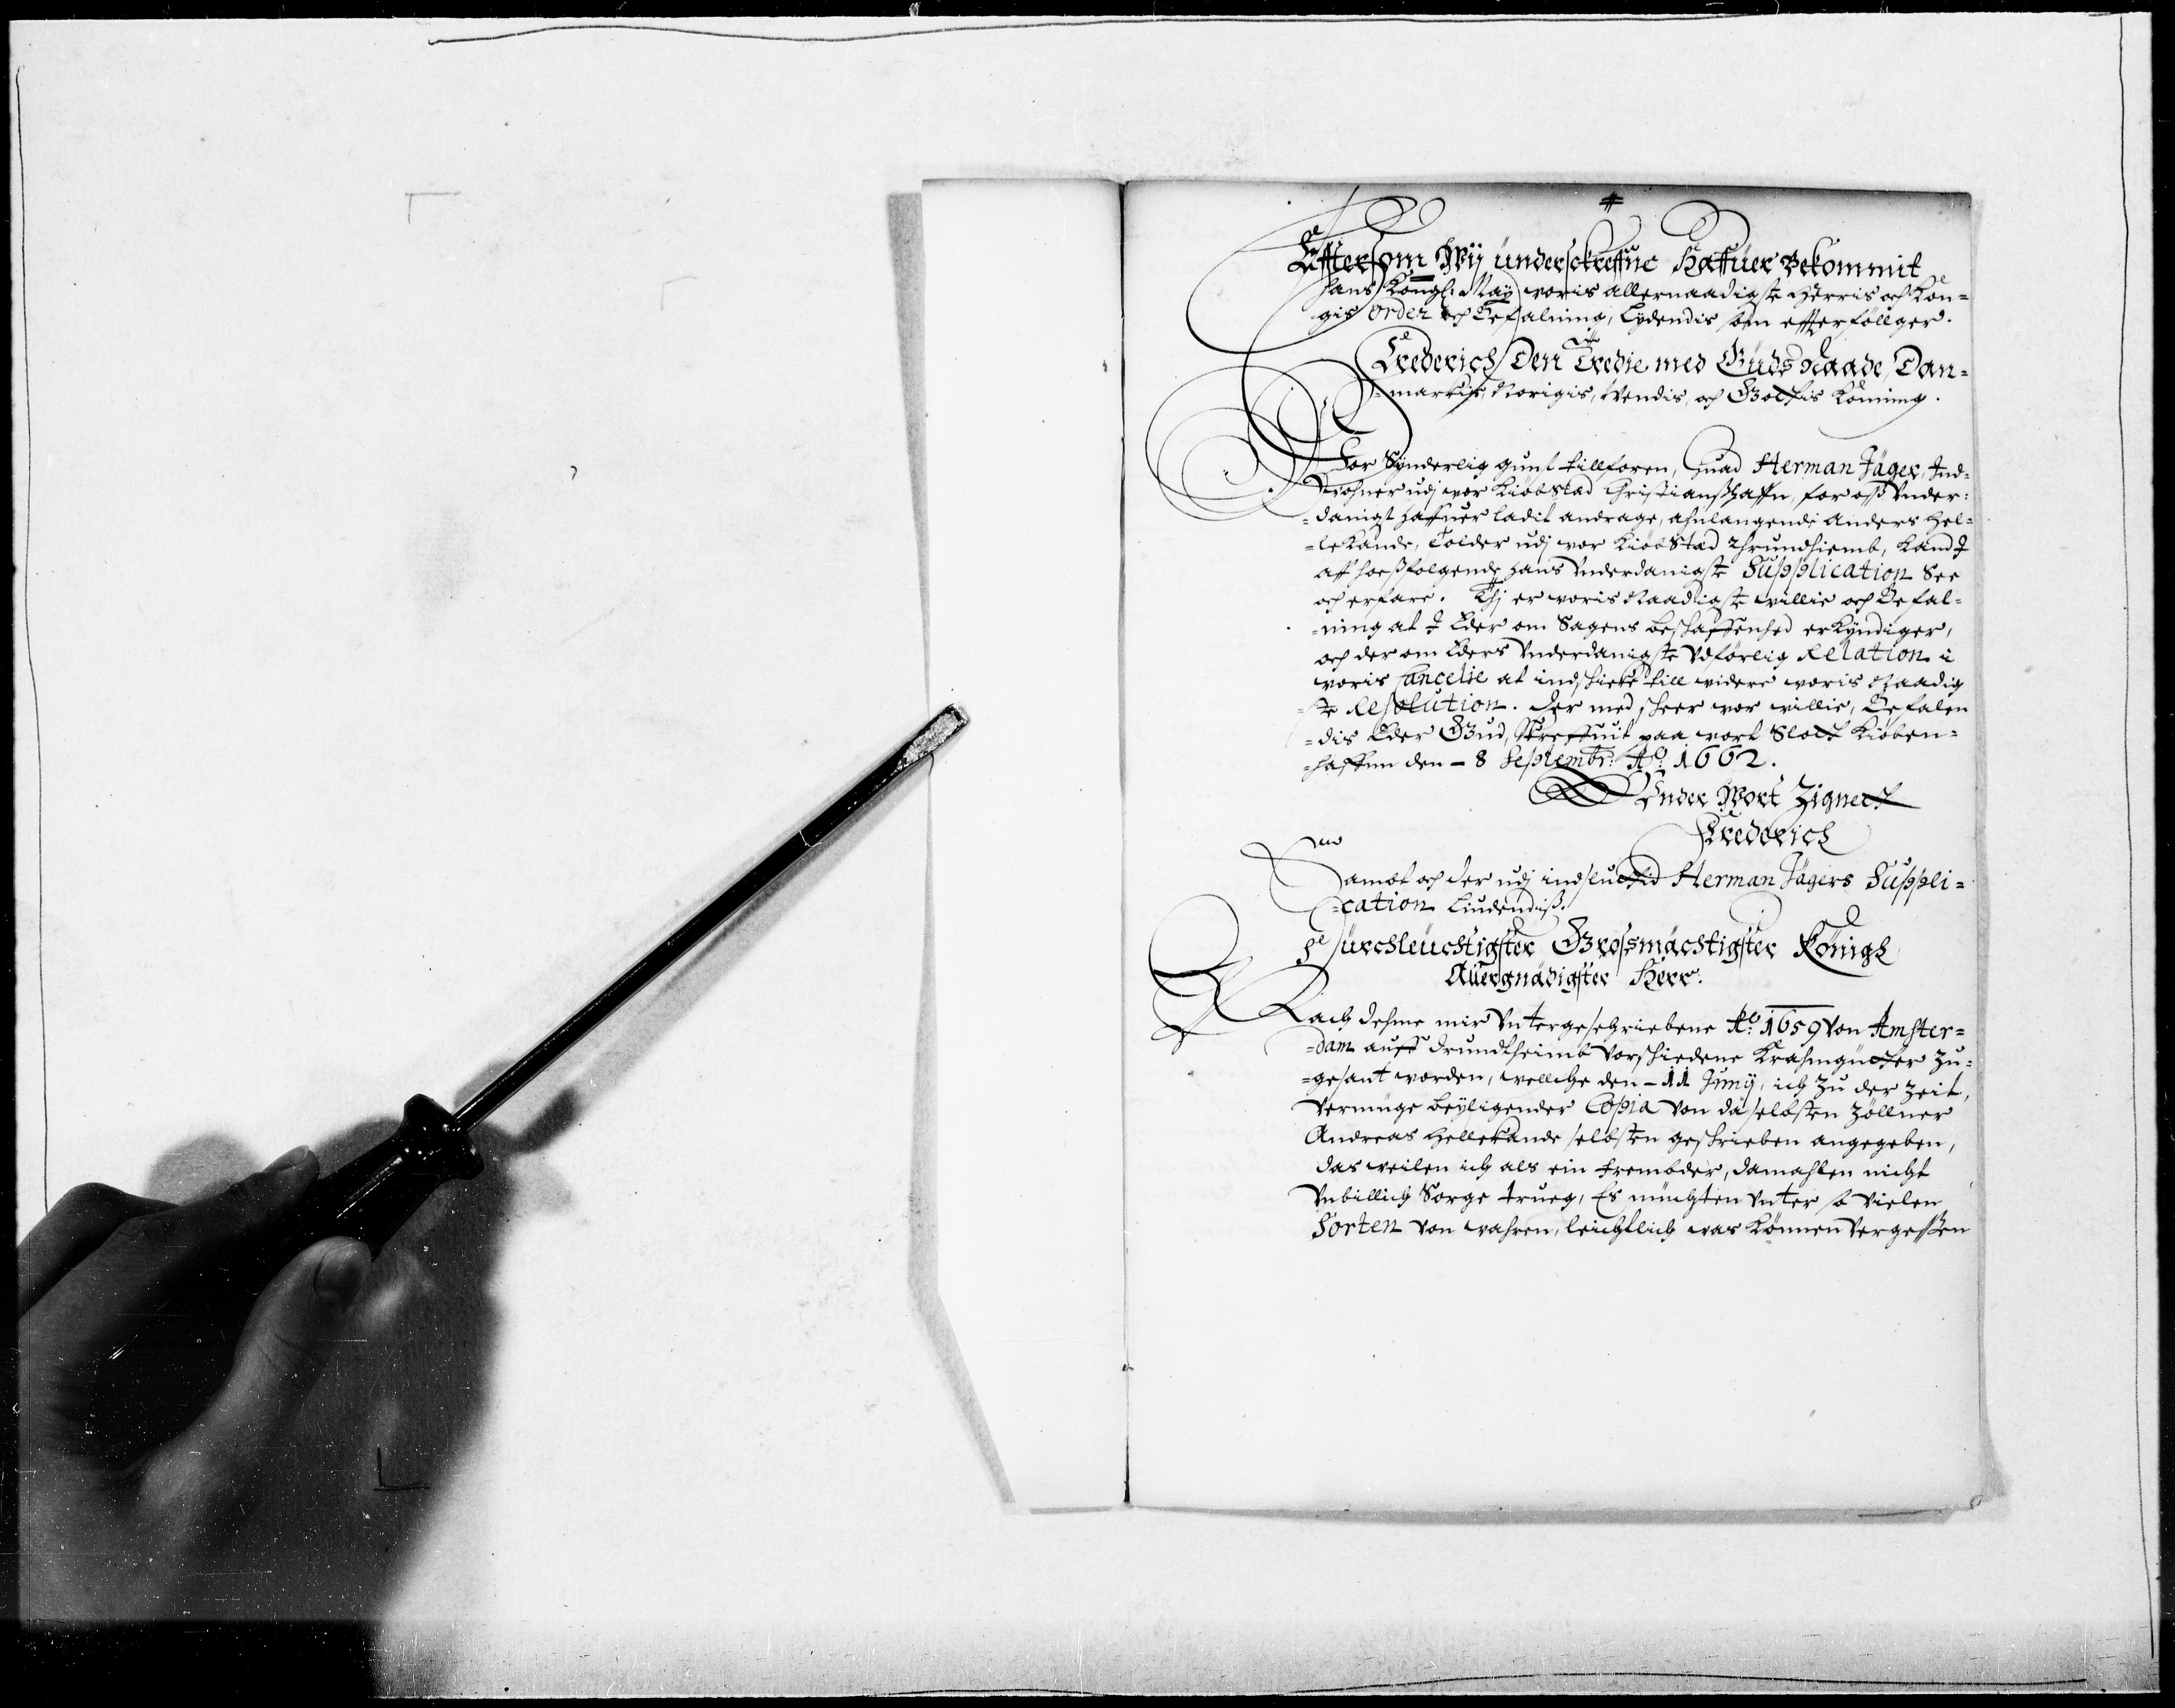 Efftersom Wij underschreffne Haffuer Bekommit
hans Kongl: May voris allernaadigste Herris och Kon=
gis Order och Befalning, Lydendis som efterföllger.
Frederich Den Tredie med Guds Naade, Dan=
=markis, Norigis, Wendis, och Gottis Konning.
Vor Synderlig gunst tillforen, Huad Herman Jäger, Ind=
wohner udj vor Kiöbstad Christianshaffn, for oss Under=
=danigt haffuer ladit andrage, ahnlangende Anders Hel=
=lekande, Tolder udj vor Kiöbstad Thrundhiemb, Kand I
aff hosfölgende hans Underdanigste Supplication See
och erfare. Thj er voris Naadigste villie och Befal=
=ning at I Eder om Sagens beschaffenhed erkyndiger,
och der om Eders Underdanigste Udförlig Relation i
voris Cancelie at indschicke till videre voris Naadig
=ste Resolution. Der med scheer vor villie, Befalen
=dis Eder Gud, Skreffuit paa vort Slott Kiöben=
=haffnn den - 8 Septembr: Ao. 1662.
Under Wort Zignett
Frederich
Samot och der udj indsluttid Herman Jägers Suppli=
=cation Liudendiss.
Dürchleüchtigster Grossmächtigster Königh
Allergnädigster Herr.
Nach dehme mir Untergeschriebene Ao. 1659 Von Amster=
=dam auff Drundtheimb Vorschiedene Krahmgütter Zu=
=gesant worden, wellche den - 11 Junij, ich Zu der Zeit,
Vermüge beyligender Copia Von daselbsten Zöllner
Andreas Hellekande selbsten geschrieben angegeben,
das weilen ich als ein frembder, damahlen nicht
Unbillich Sorge trueg, Es müchten Unter so Vielen
Sorten Von wahren, leichtlich was können Vergessen